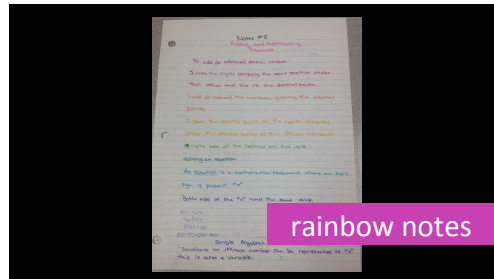 Notes #8
Adding and Subtracting
Decimals
To add (or subtract) decimal numbers
1. write the digits occupying the same position under
each other and line up the decimal points.
2. add (or subtract) the numbers, ignoring the decimal
points
3. place the decimal point in the answer directly
under the decimal points of the numbers
*make sure all the decimals are lined up!!
Solving an Equation
An equation is a mathematical statement where an equal
sign is present "="
Both sides of the "=" have the same value.
Simple Algebra
"Sometimes an unknown number can be represented as "x"
this is called a variable.
rainbow notes